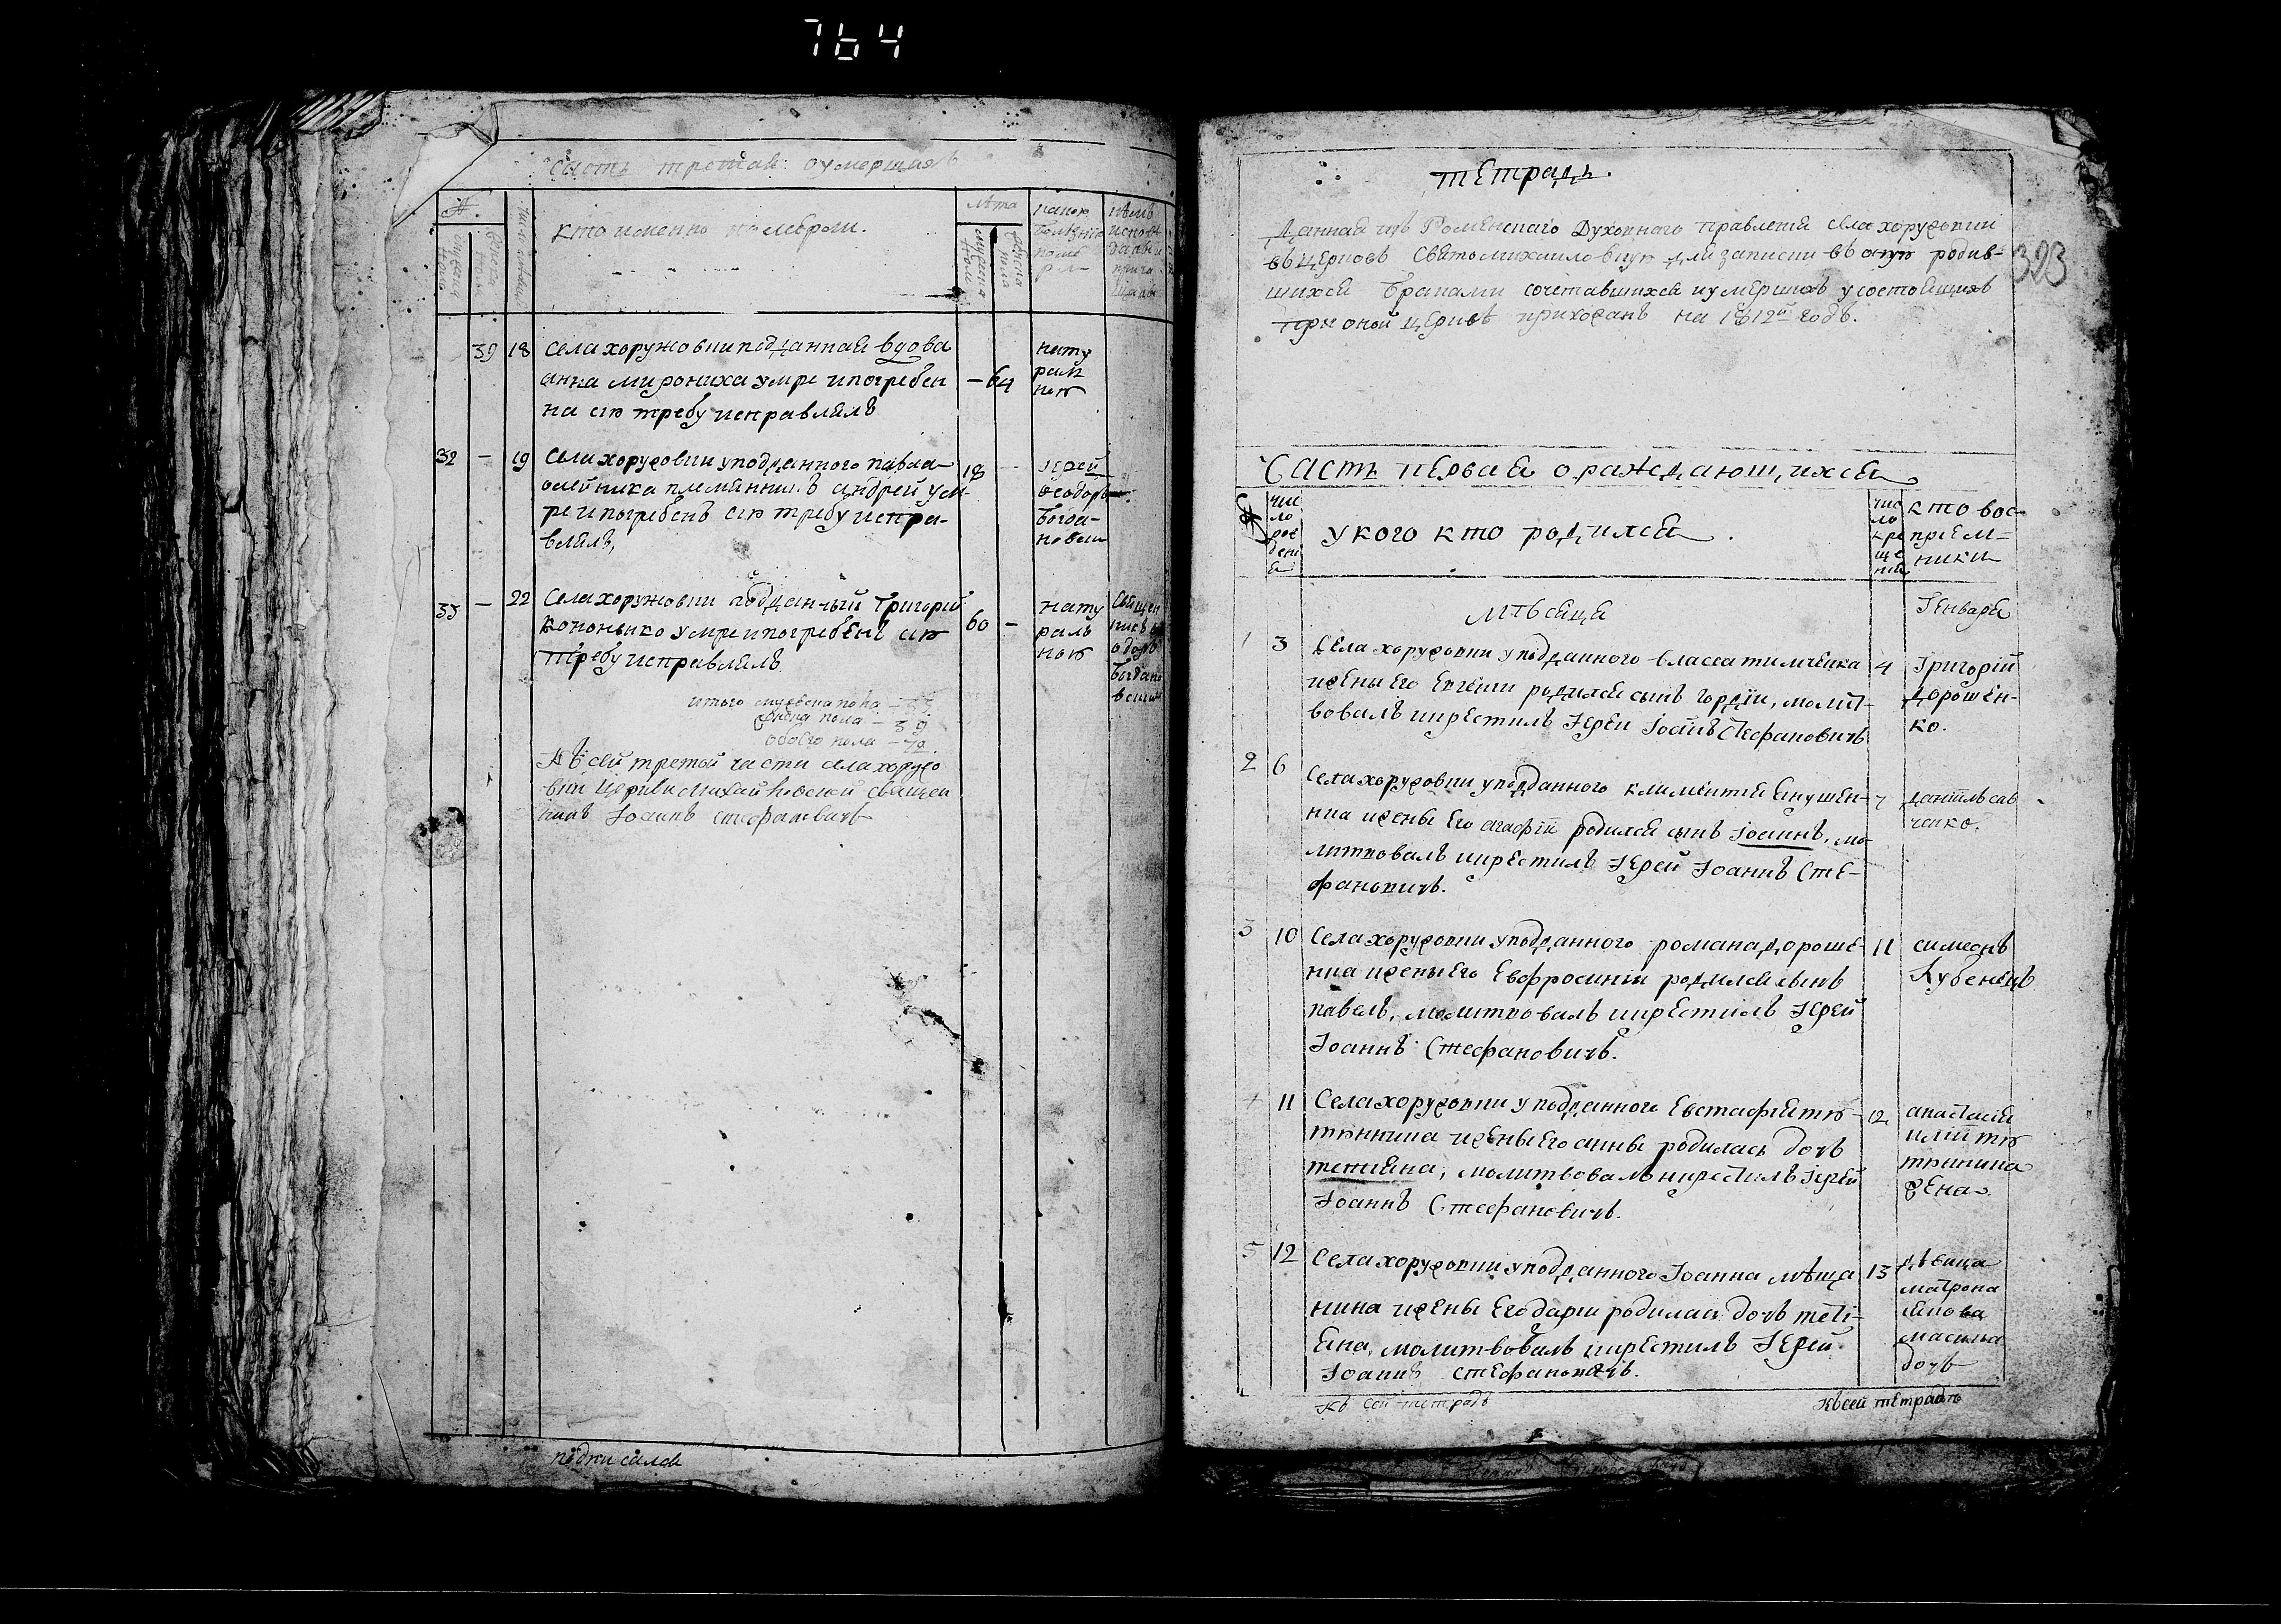 764
Часть третая оумершихъ
№.
Лѣта
кто именно померли.
39 18 Села хоружовки подданная вдова
анна мирониха умре и погребен
на сїю требу исправлялъ
— 64
нату
раль
ною
32 — 19 Села хоружовки уподданного павла
олейника племянникъ андрей ум-
ре и погребенъ сїю требу испра-
влялъ,
18 —
Іерей
Ѳеодоръ
Богда-
новичь
33 — 22 Села хоружовки подданный Григорій
Кононенко умре и погребенъ сїю
требу исправлялъ
60 —
нату
раль
ною
Священ
никъ
Ѳедоръ
Богдано
вичь
итого мужеска пола — 33
женска пола — 39
обоего пола — 72.
Къ сей третой части села хоружо
вки Церкви Михайловской священ
никъ Іоаннъ Стефановичъ
подписался
тетрадь.
Данная изъ Роменскаго Духовного Правленія села хоружовки
въ церковь Святомихаиловскую для записки въ оную родив-
шихся Браками сочетавшихся и умершихъ у состоящихъ
При оной церквѣ прихожанъ на 1812й годъ.
323
Часть первая о раждающихся
№
чис
ло
рож
дені
я
у кого кто родился.
чис
ло
кре
ще
нія
кто вос-
прием-
ники
мѣсяца Генваря
1 3 Села хоружовки уподданного власа тимченка
и жены его Евгеніи родился сынъ гордѣи, молит-
вовалъ и крестилъ Іерей Іоаннъ Стефановичъ
4 Григорій
Дорошен-
ко.
2 6 Села хоружовки уподданного климентія Янушен-
ка и жены Его агафіи родился сынъ Іоаннъ, мо-
литвовалъ и крестилъ Іерей Іоаннъ Сте-
фановичъ.
7 даніилъ сав
ченко.
3 10 Села хоружовки уподданного романа дороше-
нка и жены Его Евфросиніи родился сынъ
павелъ, молитвовалъ и крестилъ Іерей
Іоаннъ Стефановичъ.
11 симеонъ
Кубенецъ
4 11 Села хоружовки уподданного Евстафія тю-
тюнника и жены Его анны родилась дочъ
тетияна, молитвовалъ и крестилъ Іерей
Іоаннъ Стефановичъ.
12 анастасія
иліи тю
тюнника
жена.
5 12 Села хоружовки уподданного Іоанна мѣща
нина и жены Его дарїи родилась дочъ теті-
яна, молитвовалъ и крестилъ Іерей
Іоаннъ Стефановичъ.
13 дѣвица
матрона
якова
дочъ
Къ сей тетрадѣ Къ сей тетрадѣ